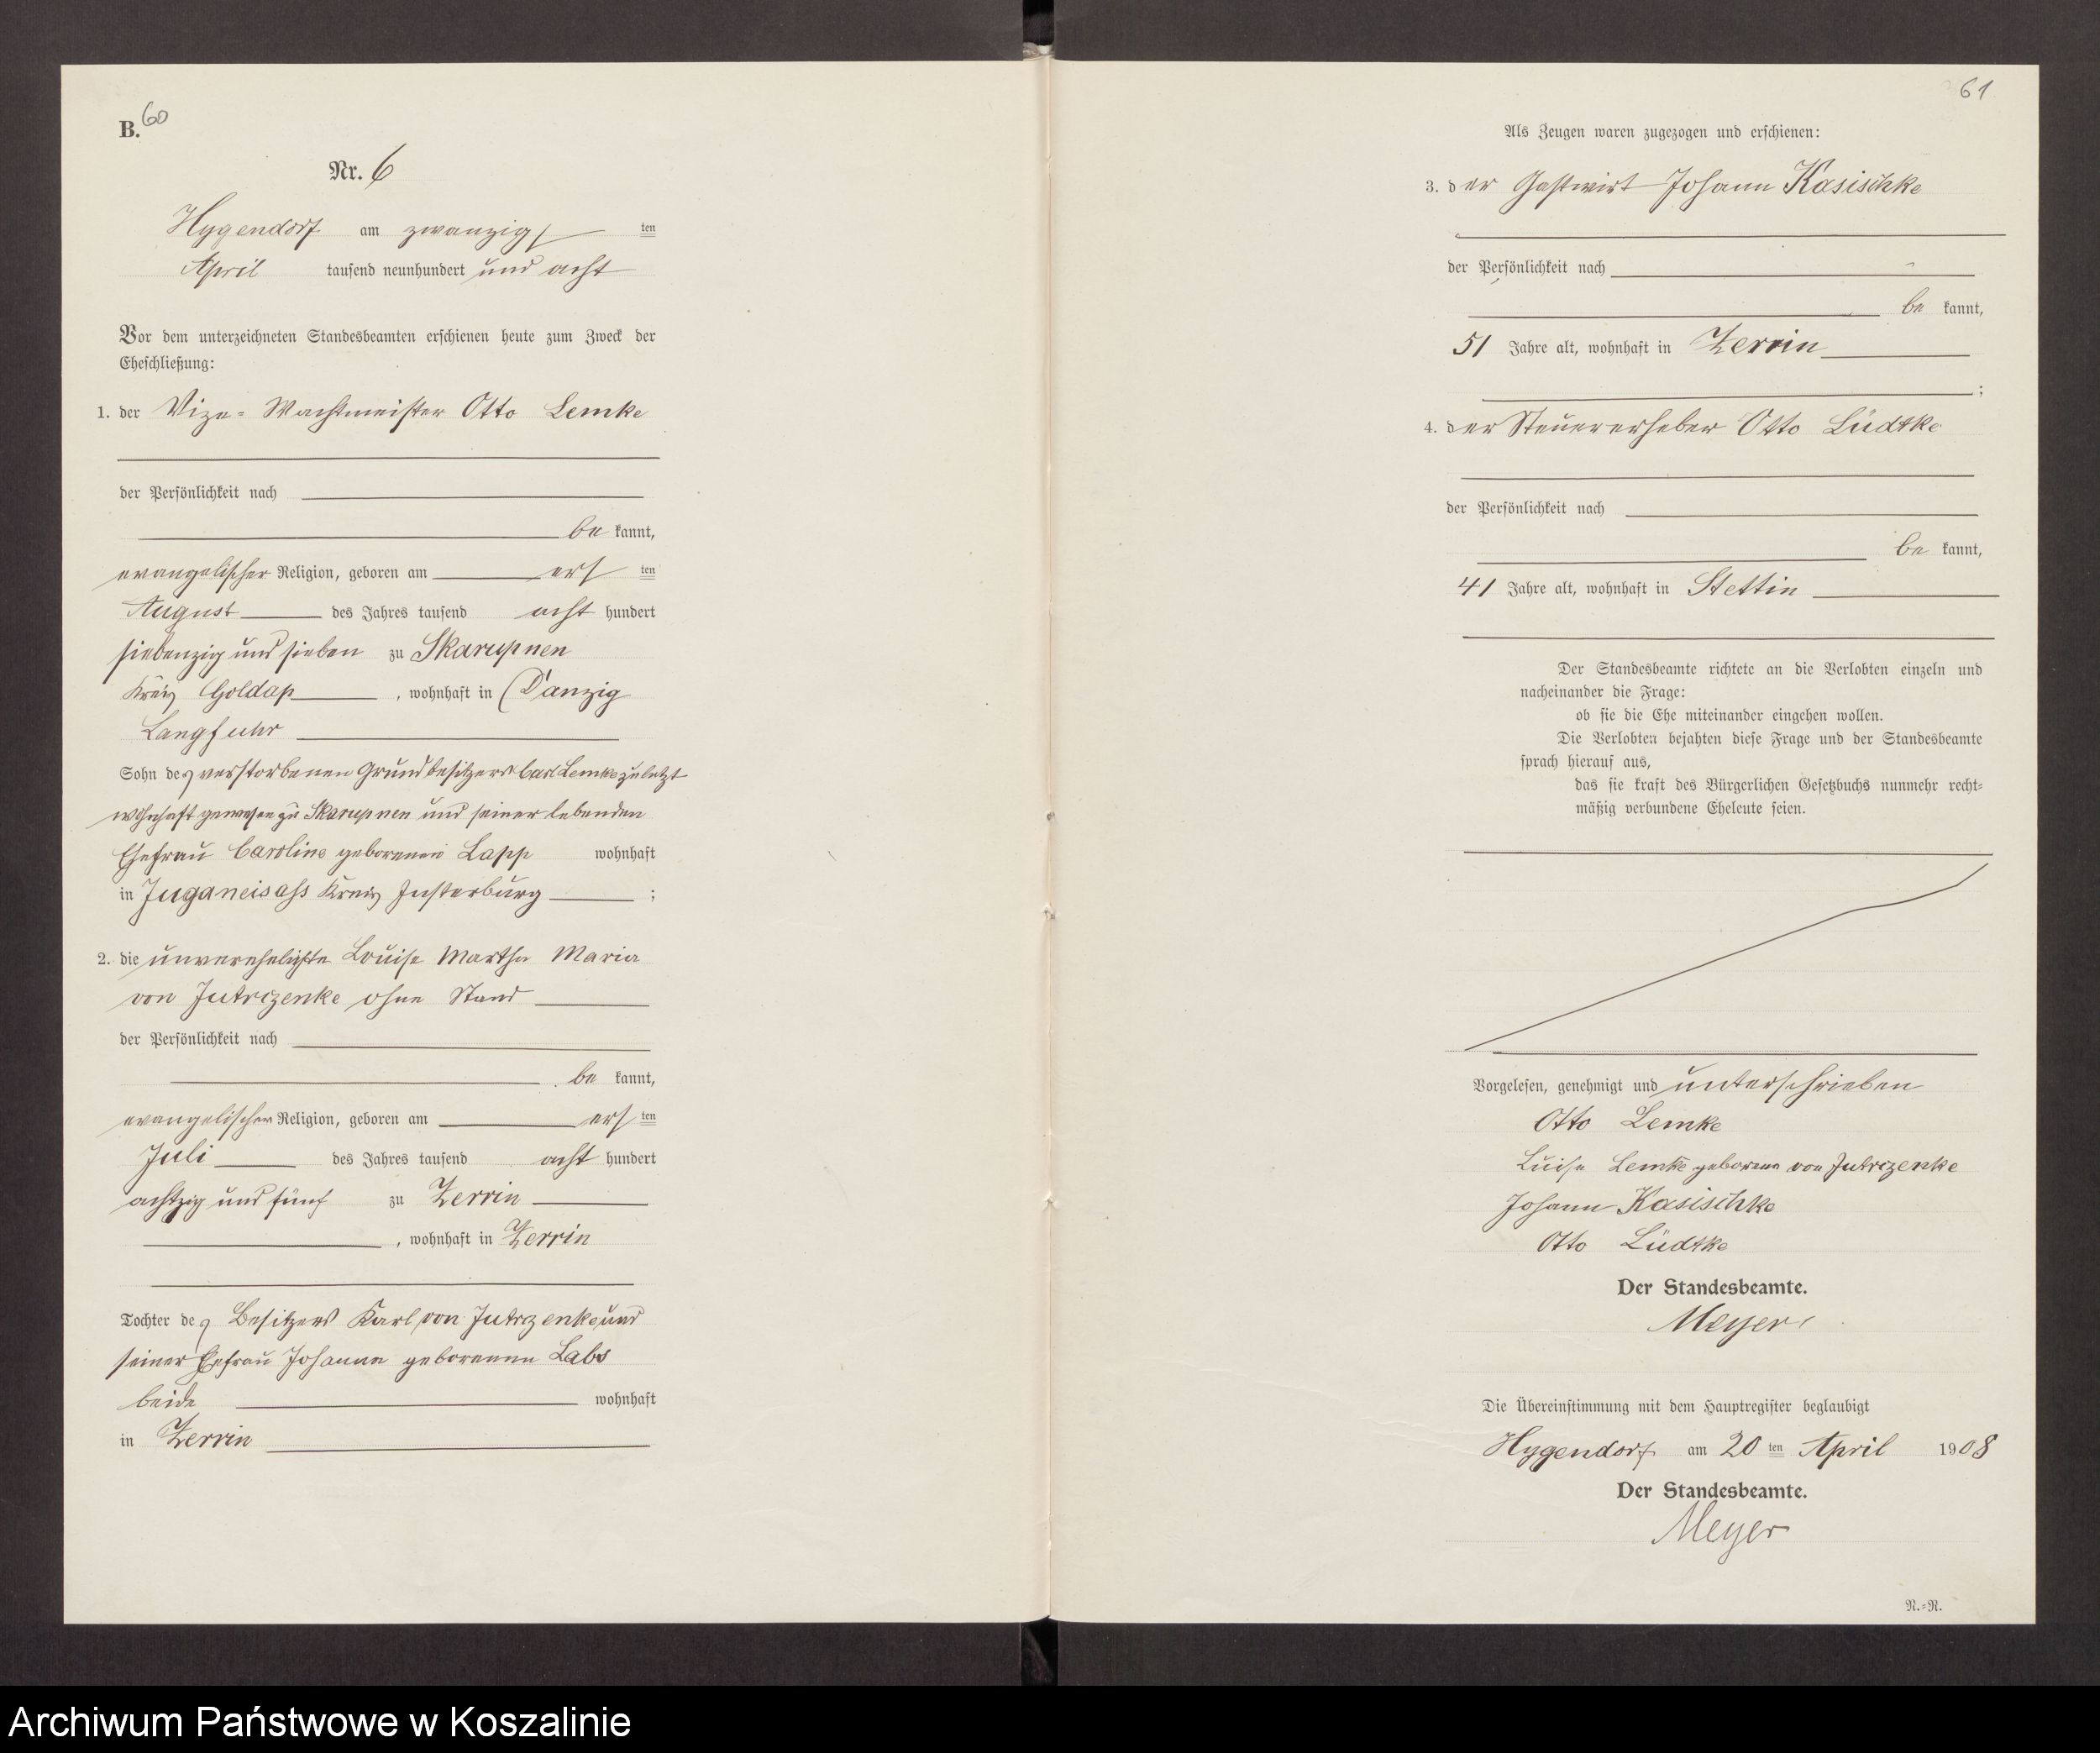 B. 60
Nr. 6
Hygendorf am zwanzigsten
April tausend neunhundert und acht
Vor dem unterzeichneten Standesbeamten erschienen heute zum Zweck der
Eheschließung:
1. der Vize-Wachtmeister Otto Lemke
der Persönlichkeit nach
be kannt,
evangelischer Religion, geboren am ersten
August des Jahres tausend acht hundert
siebenzig und sieben zu Skarupnen
Kreis Goldap, wohnhaft in Danzig
Langfuhr
Sohn des verstorbenen Grundbesitzers Carl Lemke zuletzt
wohnhaft gewesen zu Skarupnen und seiner lebenden
Ehefrau Caroline geborenen Lapp wohnhaft
in Juganeisass Kreis Insterburg;
2. die unverehelichte Louise Martha Maria
von Jutrzenke ohne Stand
der Persönlichkeit nach
be kannt,
evangelischer Religion, geboren am ersten
Juli des Jahres tausend acht hundert
achtzig und fünf zu Zerrin
, wohnhaft in Zerrin
Tochter des Besitzers Karl von Jutrzenke und
seiner Ehefrau Johanna geborenen Labs
beide wohnhaft
in Zerrin
61
Als Zeugen waren zugezogen und erschienen:
3. der Gastwirt Johann Kasischke
der Persönlichkeit nach
be kannt,
51 Jahre alt, wohnhaft in Zerrin
;
4. der Steuererheber Otto Lüdtke
der Persönlichkeit nach
be kannt,
41 Jahre alt, wohnhaft in Stettin
Der Standesbeamte richtete an die Verlobten einzeln und
nacheinander die Frage:
ob sie die Ehe miteinander eingehen wollen.
Die Verlobten bejahten diese Frage und der Standesbeamte
sprach hierauf aus,
das sie kraft des Bürgerlichen Gesetzbuchs nunmehr recht-
mäßig verbundene Eheleute seien.
Vorgelesen, genehmigt und unterschrieben
Otto Lemke
Luise Lemke geborene von Jutrzenke
Johann Kasischke
Otto Lüdtke
Der Standesbeamte.
Meyer
Die Übereinstimmung mit dem Hauptregister beglaubigt
Hygendorf am 20 ten April 1908
Der Standesbeamte.
Meyer
N.-N.
Archiwum Państwowe w Koszalinie